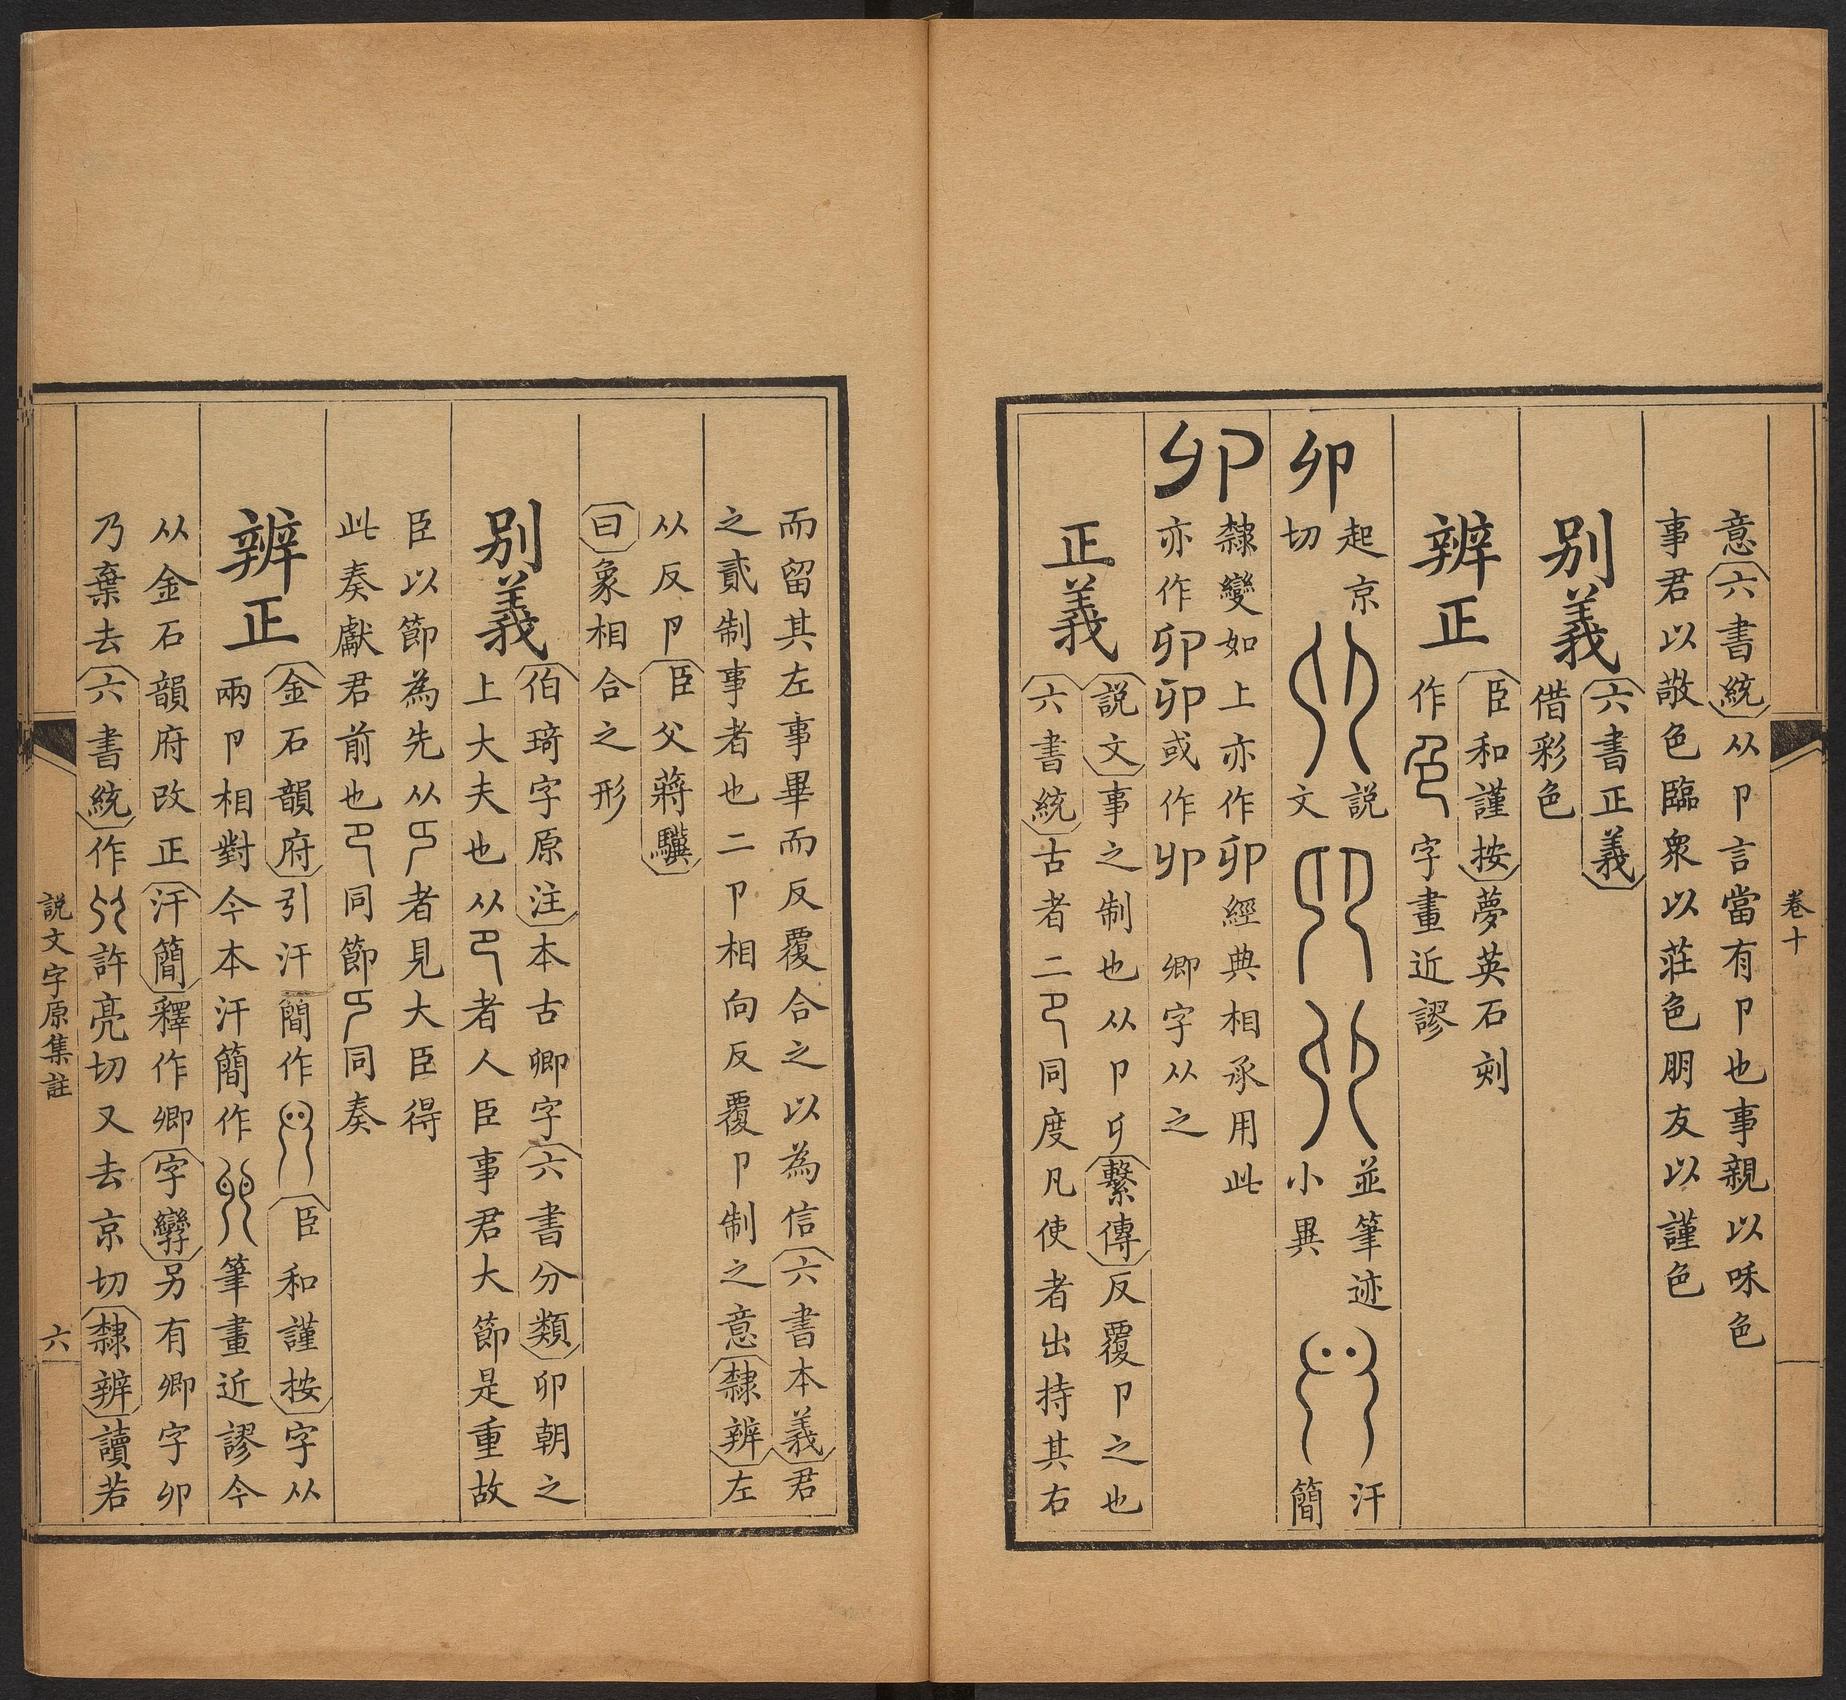 卷十
意六書統从卩言當有卩也事親以咊色
事君以敬色臨衆以莊色朋友以謹色
別義
六書正義
借彩色
辨正
臣和謹按夢英石刻
作 字畫近謬
卯
起京
切
說
文
並筆迹
小異
汗
簡
卯
隸變如上亦作卯經典相承用此
亦作卯卯或作卯 卿字从之
正義
說文事之制也从卩繫傳反覆卩之也
六書統古者二卪同度凡使者出持其右
而留其左事畢而反覆合之以為信六書本義君
之貳制事者也二卩相向反覆卩制之意隸辨左
从反卩臣父蔣驥
曰象相合之形
別義
伯琦字原注本古卿字六書分類卯朝之
上大夫也从卪者人臣事君大節是重故
臣以節為先从者見大臣得
此奏獻君前也卪同節同奏
辨正
金石韻府引汗簡作 臣和謹按字从
兩卩相對今本汗簡作 筆畫近謬今
从金石韻府改正汗簡釋作卿字孿另有卿字卯
乃棄去六書統作 許亮切又去京切隸辨讀若
說文字原集註
六